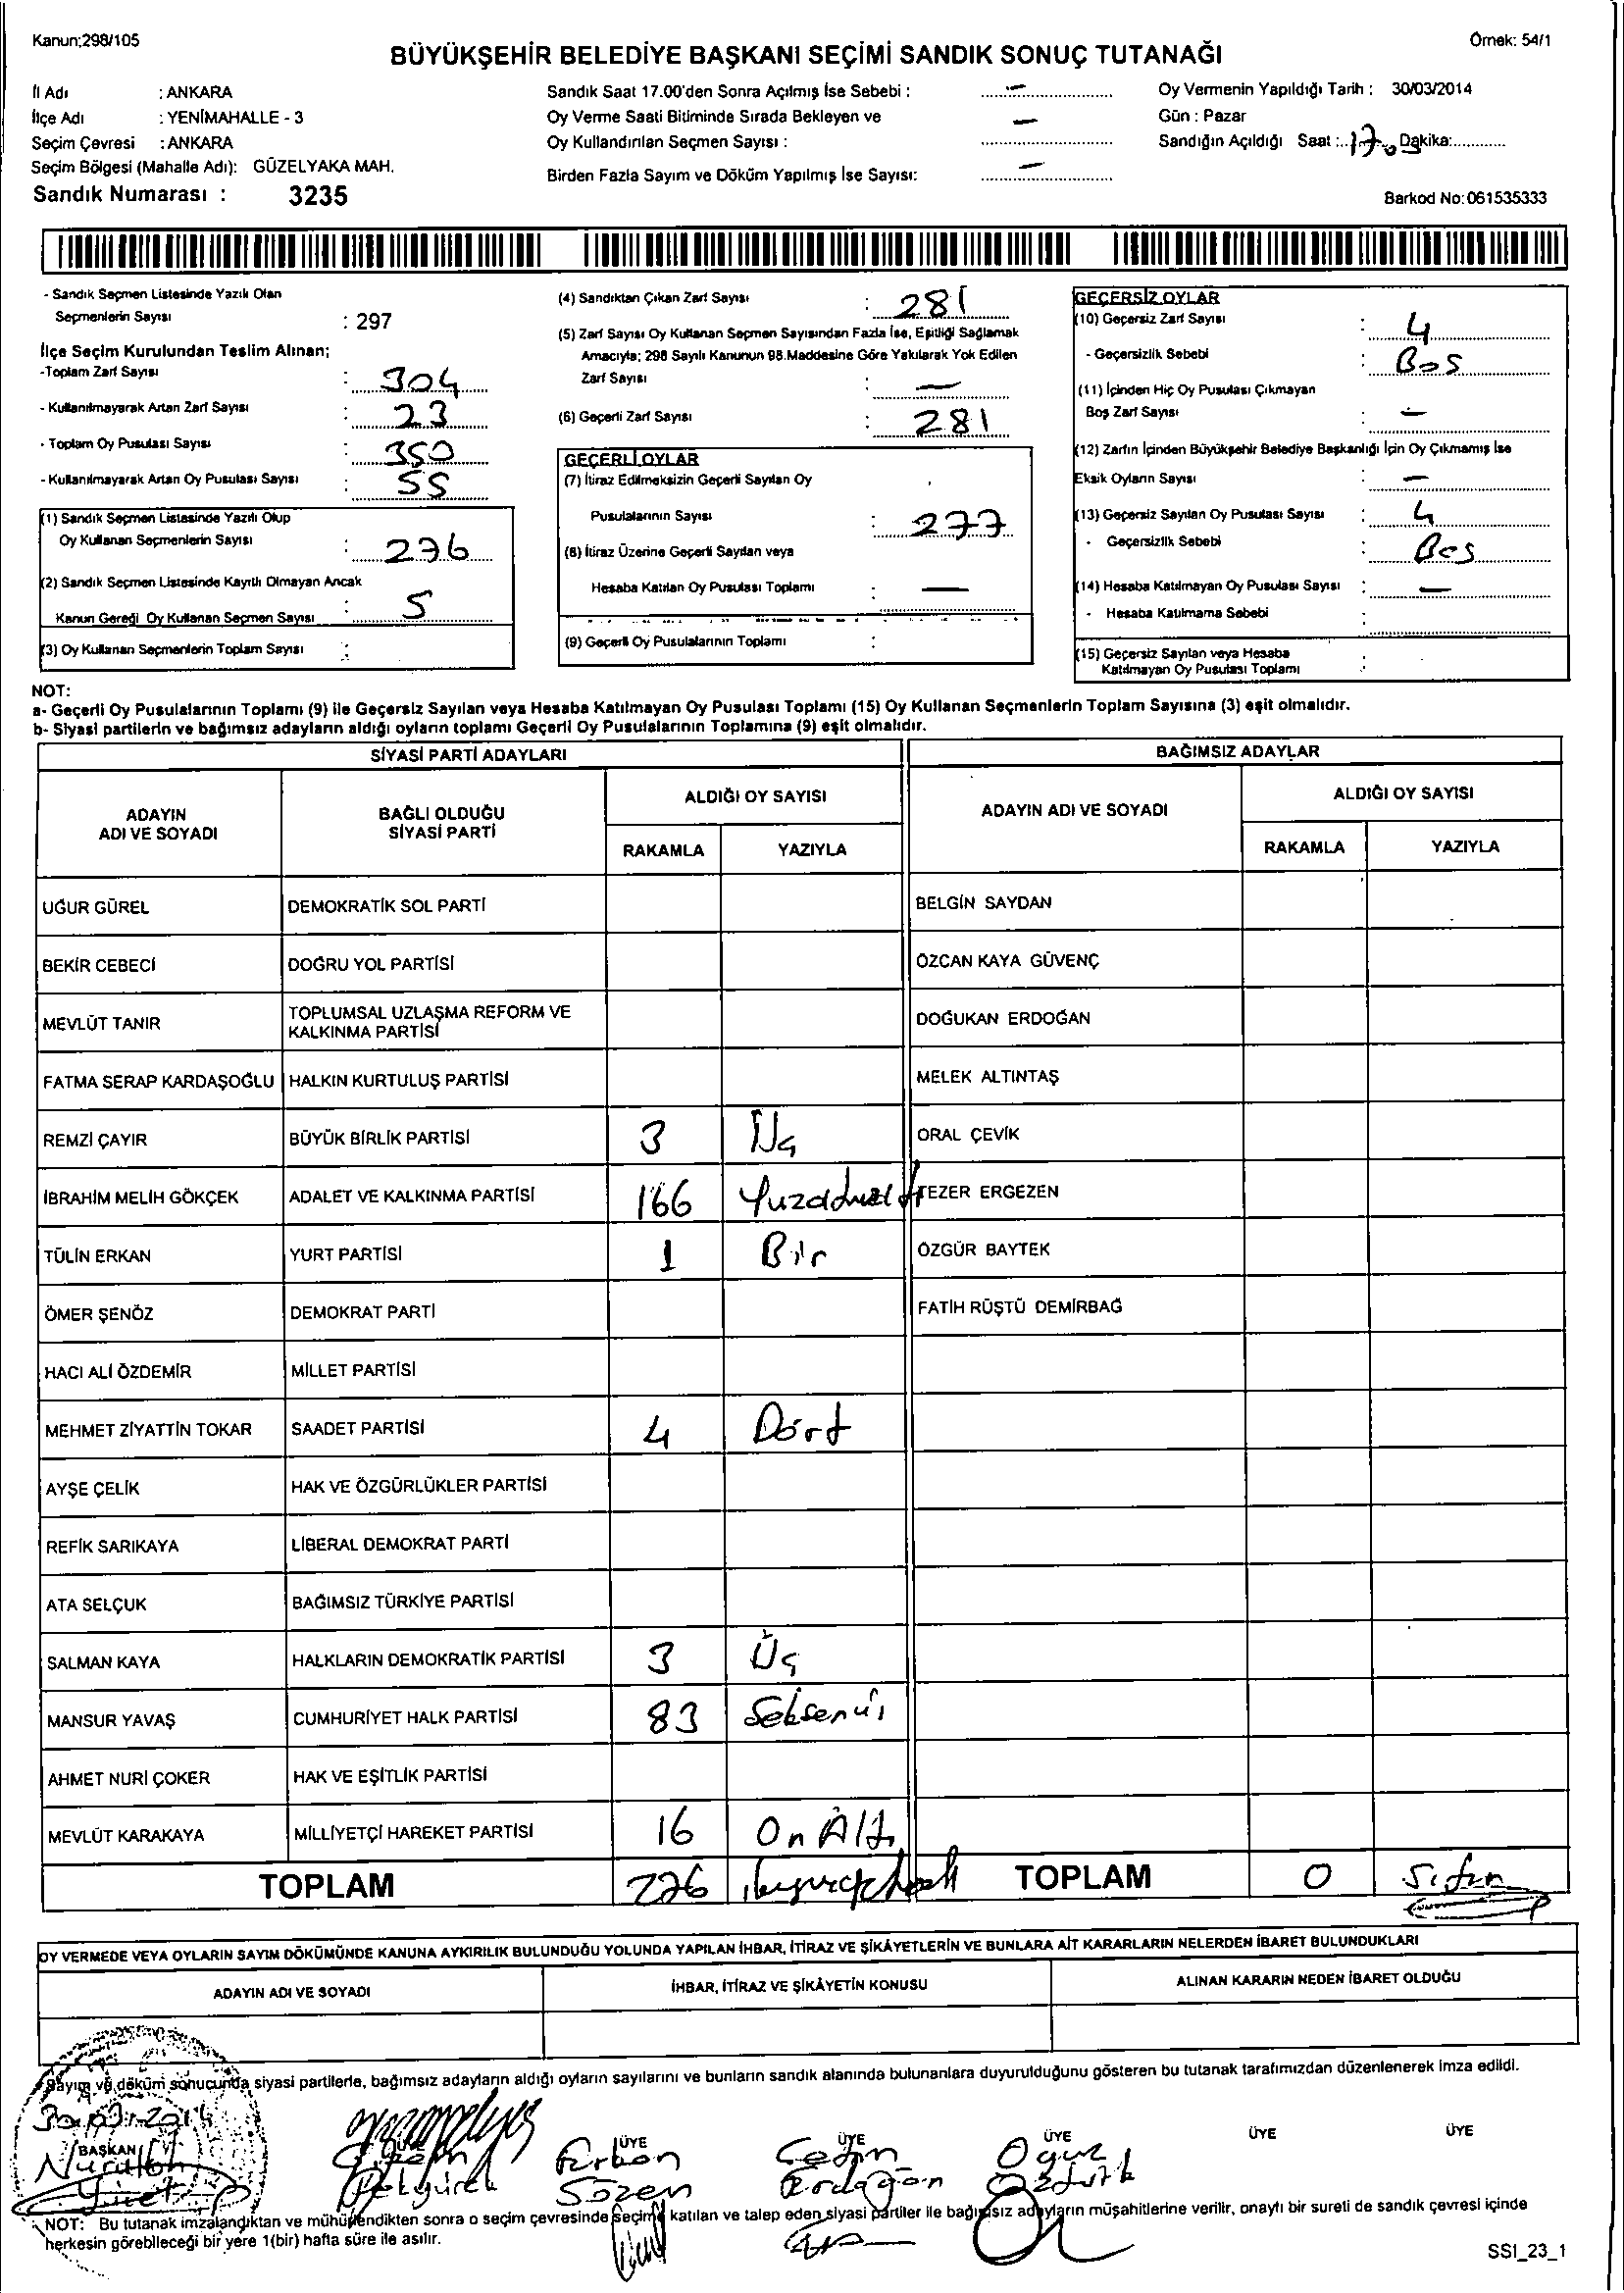 Kanun;298/105
Örnek: 54/1
BÜYÜKŞEHİR BELEDİYE BAŞKANI SEÇİMİ SANDIK SONUÇ TUTANAĞI
İl Adı : ANKARA
İlçe Adı : YENİMAHALLE - 3
Seçim Çevresi : ANKARA
Seçim Bölgesi (Mahalle Adı): GÜZELYAKA MAH.
Sandık Numarası : 3235
Sandık Saat 17.00'den Sonra Açılmış İse Sebebi : —
Oy Verme Saati Bitiminde Sırada Bekleyen ve
Oy Kullandırılan Seçmen Sayısı : —
Birden Fazla Sayım ve Döküm Yapılmış İse Sayısı: —
Oy Vermenin Yapıldığı Tarih : 30/03/2014
Gün : Pazar
Sandığın Açıldığı Saat : 17 Dakika:
Barkod No:061535333
- Sandık Seçmen Listesinde Yazılı Olan
Seçmenlerin Sayısı : 297
İlçe Seçim Kurulundan Teslim Alınan;
-Toplam Zarf Sayısı : 304
- Kullanılmayarak Artan Zarf Sayısı : 23
- Toplam Oy Pusulası Sayısı : 350
- Kullanılmayarak Artan Oy Pusulası Sayısı : 55
(1) Sandık Seçmen Listesinde Yazılı Olup
Oy Kullanan Seçmenlerin Sayısı : 276
(2) Sandık Seçmen Listesinde Kayıtlı Olmayan Ancak
Kanun Gereği Oy Kullanan Seçmen Sayısı : 5
(3) Oy Kullanan Seçmenlerin Toplam Sayısı :
(4) Sandıktan Çıkan Zarf Sayısı : 281
(5) Zarf Sayısı Oy Kullanan Seçmen Sayısından Fazla İse, Eşitliği Sağlamak
Amacıyla; 298 Sayılı Kanunun 98.Maddesine Göre Yakılarak Yok Edilen
Zarf Sayısı : —
(6) Geçerli Zarf Sayısı : 281
GEÇERLİ OYLAR
(7) İtiraz Edilmeksizin Geçerli Sayılan Oy
Pusulalarının Sayısı : 277
(8) İtiraz Üzerine Geçerli Sayılan veya
Hesaba Katılan Oy Pusulası Toplamı : —
(9) Geçerli Oy Pusulalarının Toplamı :
GEÇERSİZ OYLAR
(10) Geçersiz Zarf Sayısı : 4
- Geçersizlik Sebebi : Bos
(11) İçinden Hiç Oy Pusulası Çıkmayan
Boş Zarf Sayısı : —
(12) Zarfın İçinden Büyükşehir Belediye Başkanlığı İçin Oy Çıkmamış İse
Eksik Oyların Sayısı : —
(13) Geçersiz Sayılan Oy Pusulası Sayısı : 4
- Geçersizlik Sebebi : Bos
(14) Hesaba Katılmayan Oy Pusulası Sayısı : —
- Hesaba Katılmama Sebebi :
(15) Geçersiz Sayılan veya Hesaba
Katılmayan Oy Pusulası Toplamı :
NOT:
a- Geçerli Oy Pusulalarının Toplamı (9) ile Geçersiz Sayılan veya Hesaba Katılmayan Oy Pusulası Toplamı (15) Oy Kullanan Seçmenlerin Toplam Sayısına (3) eşit olmalıdır.
b- Siyasi partilerin ve bağımsız adayların aldığı oyların toplamı Geçerli Oy Pusulalarının Toplamına (9) eşit olmalıdır.
SİYASİ PARTİ ADAYLARI
BAĞIMSIZ ADAYLAR
ADAYIN ADI VE SOYADI
BAĞLI OLDUĞU SİYASİ PARTİ
ALDIĞI OY SAYISI
RAKAMLA YAZIYLA
ADAYIN ADI VE SOYADI
ALDIĞI OY SAYISI
RAKAMLA YAZIYLA
UĞUR GÜREL DEMOKRATİK SOL PARTİ BELGİN SAYDAN
BEKİR CEBECİ DOĞRU YOL PARTİSİ ÖZCAN KAYA GÜVENÇ
MEVLÜT TANIR TOPLUMSAL UZLAŞMA REFORM VE KALKINMA PARTİSİ DOĞUKAN ERDOĞAN
FATMA SERAP KARDAŞOĞLU HALKIN KURTULUŞ PARTİSİ MELEK ALTINTAŞ
REMZİ ÇAYIR BÜYÜK BİRLİK PARTİSİ 3 Üç ORAL ÇEVİK
İBRAHİM MELİH GÖKÇEK ADALET VE KALKINMA PARTİSİ 166 TEZER ERGEZEN
TÜLİN ERKAN YURT PARTİSİ 1 Bir ÖZGÜR BAYTEK
ÖMER ŞENÖZ DEMOKRAT PARTİ FATİH RÜŞTÜ DEMİRBAĞ
HACI ALİ ÖZDEMİR MİLLET PARTİSİ
MEHMET ZİYATTİN TOKAR SAADET PARTİSİ 4 Dört
AYŞE ÇELİK HAK VE ÖZGÜRLÜKLER PARTİSİ
REFİK SARIKAYA LİBERAL DEMOKRAT PARTİ
ATA SELÇUK BAĞIMSIZ TÜRKİYE PARTİSİ
SALMAN KAYA HALKLARIN DEMOKRATİK PARTİSİ 3 Üç
MANSUR YAVAŞ CUMHURİYET HALK PARTİSİ 83
AHMET NURİ ÇOKER HAK VE EŞİTLİK PARTİSİ
MEVLÜT KARAKAYA MİLLİYETÇİ HAREKET PARTİSİ 16 On Altı
TOPLAM 276 TOPLAM 0 Sıfır
OY VERMEDE VEYA OYLARIN SAYIM DÖKÜMÜNDE KANUNA AYKIRILIK BULUNDUĞU YOLUNDA YAPILAN İHBAR, İTİRAZ VE ŞİKÂYETLERİN VE BUNLARA AİT KARARLARIN NELERDEN İBARET BULUNDUKLARI
ADAYIN ADI VE SOYADI İHBAR, İTİRAZ VE ŞİKÂYETİN KONUSU ALINAN KARARIN NEDEN İBARET OLDUĞU
Sayım ve döküm sonucunda siyasi partilerle, bağımsız adayların aldığı oyların sayılarını ve bunların sandık alanında bulunanlara duyurulduğunu gösteren bu tutanak tarafımızdan düzenlenerek imza edildi.
30.03.2014
BAŞKAN ÜYE ÜYE ÜYE ÜYE ÜYE ÜYE
Furkan Çetin Oğuz
Sözen Erdoğan Öztürk
NOT: Bu tutanak imzalandıktan ve mühürlendikten sonra o seçim çevresinde seçime katılan ve talep eden siyasi partiler ile bağımsız adayların müşahitlerine verilir, onaylı bir sureti de sandık çevresi içinde
herkesin görebileceği bir yere 1(bir) hafta süre ile asılır.
SSI_23_1